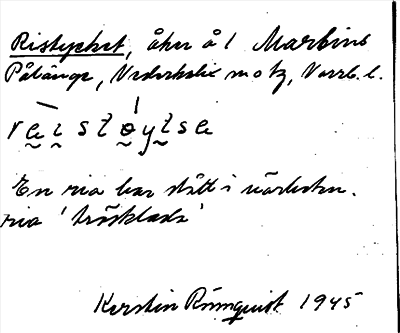 Ristycket, åker å 1 Marbins
Pålänge, Nederkalix
reistøytse
En ria har stått i närheten.
ria 'tröskladа'
Kerstin Rönnquist 1945